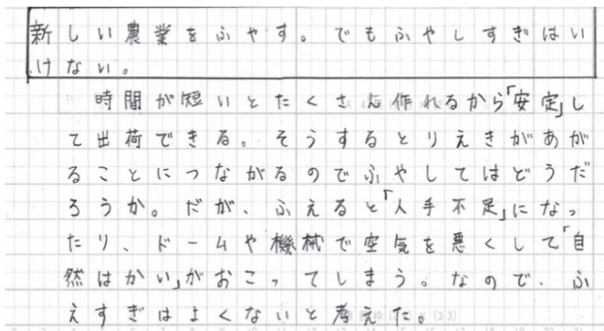 新しい農業をふやす。でもふやしすぎはい
けない。
時間が短いとたくさん作れるから「安定」し
て出荷できる。そうするとりえきがあが
ることにつながるのでふやしてはどうだ
ろうか。だが、ふえると「人手不足」になっ
たり、ドームや機械で空気を悪くして「自
然はかい」がおこってしまう。なので、ふ
えすぎはよくないと考えた。